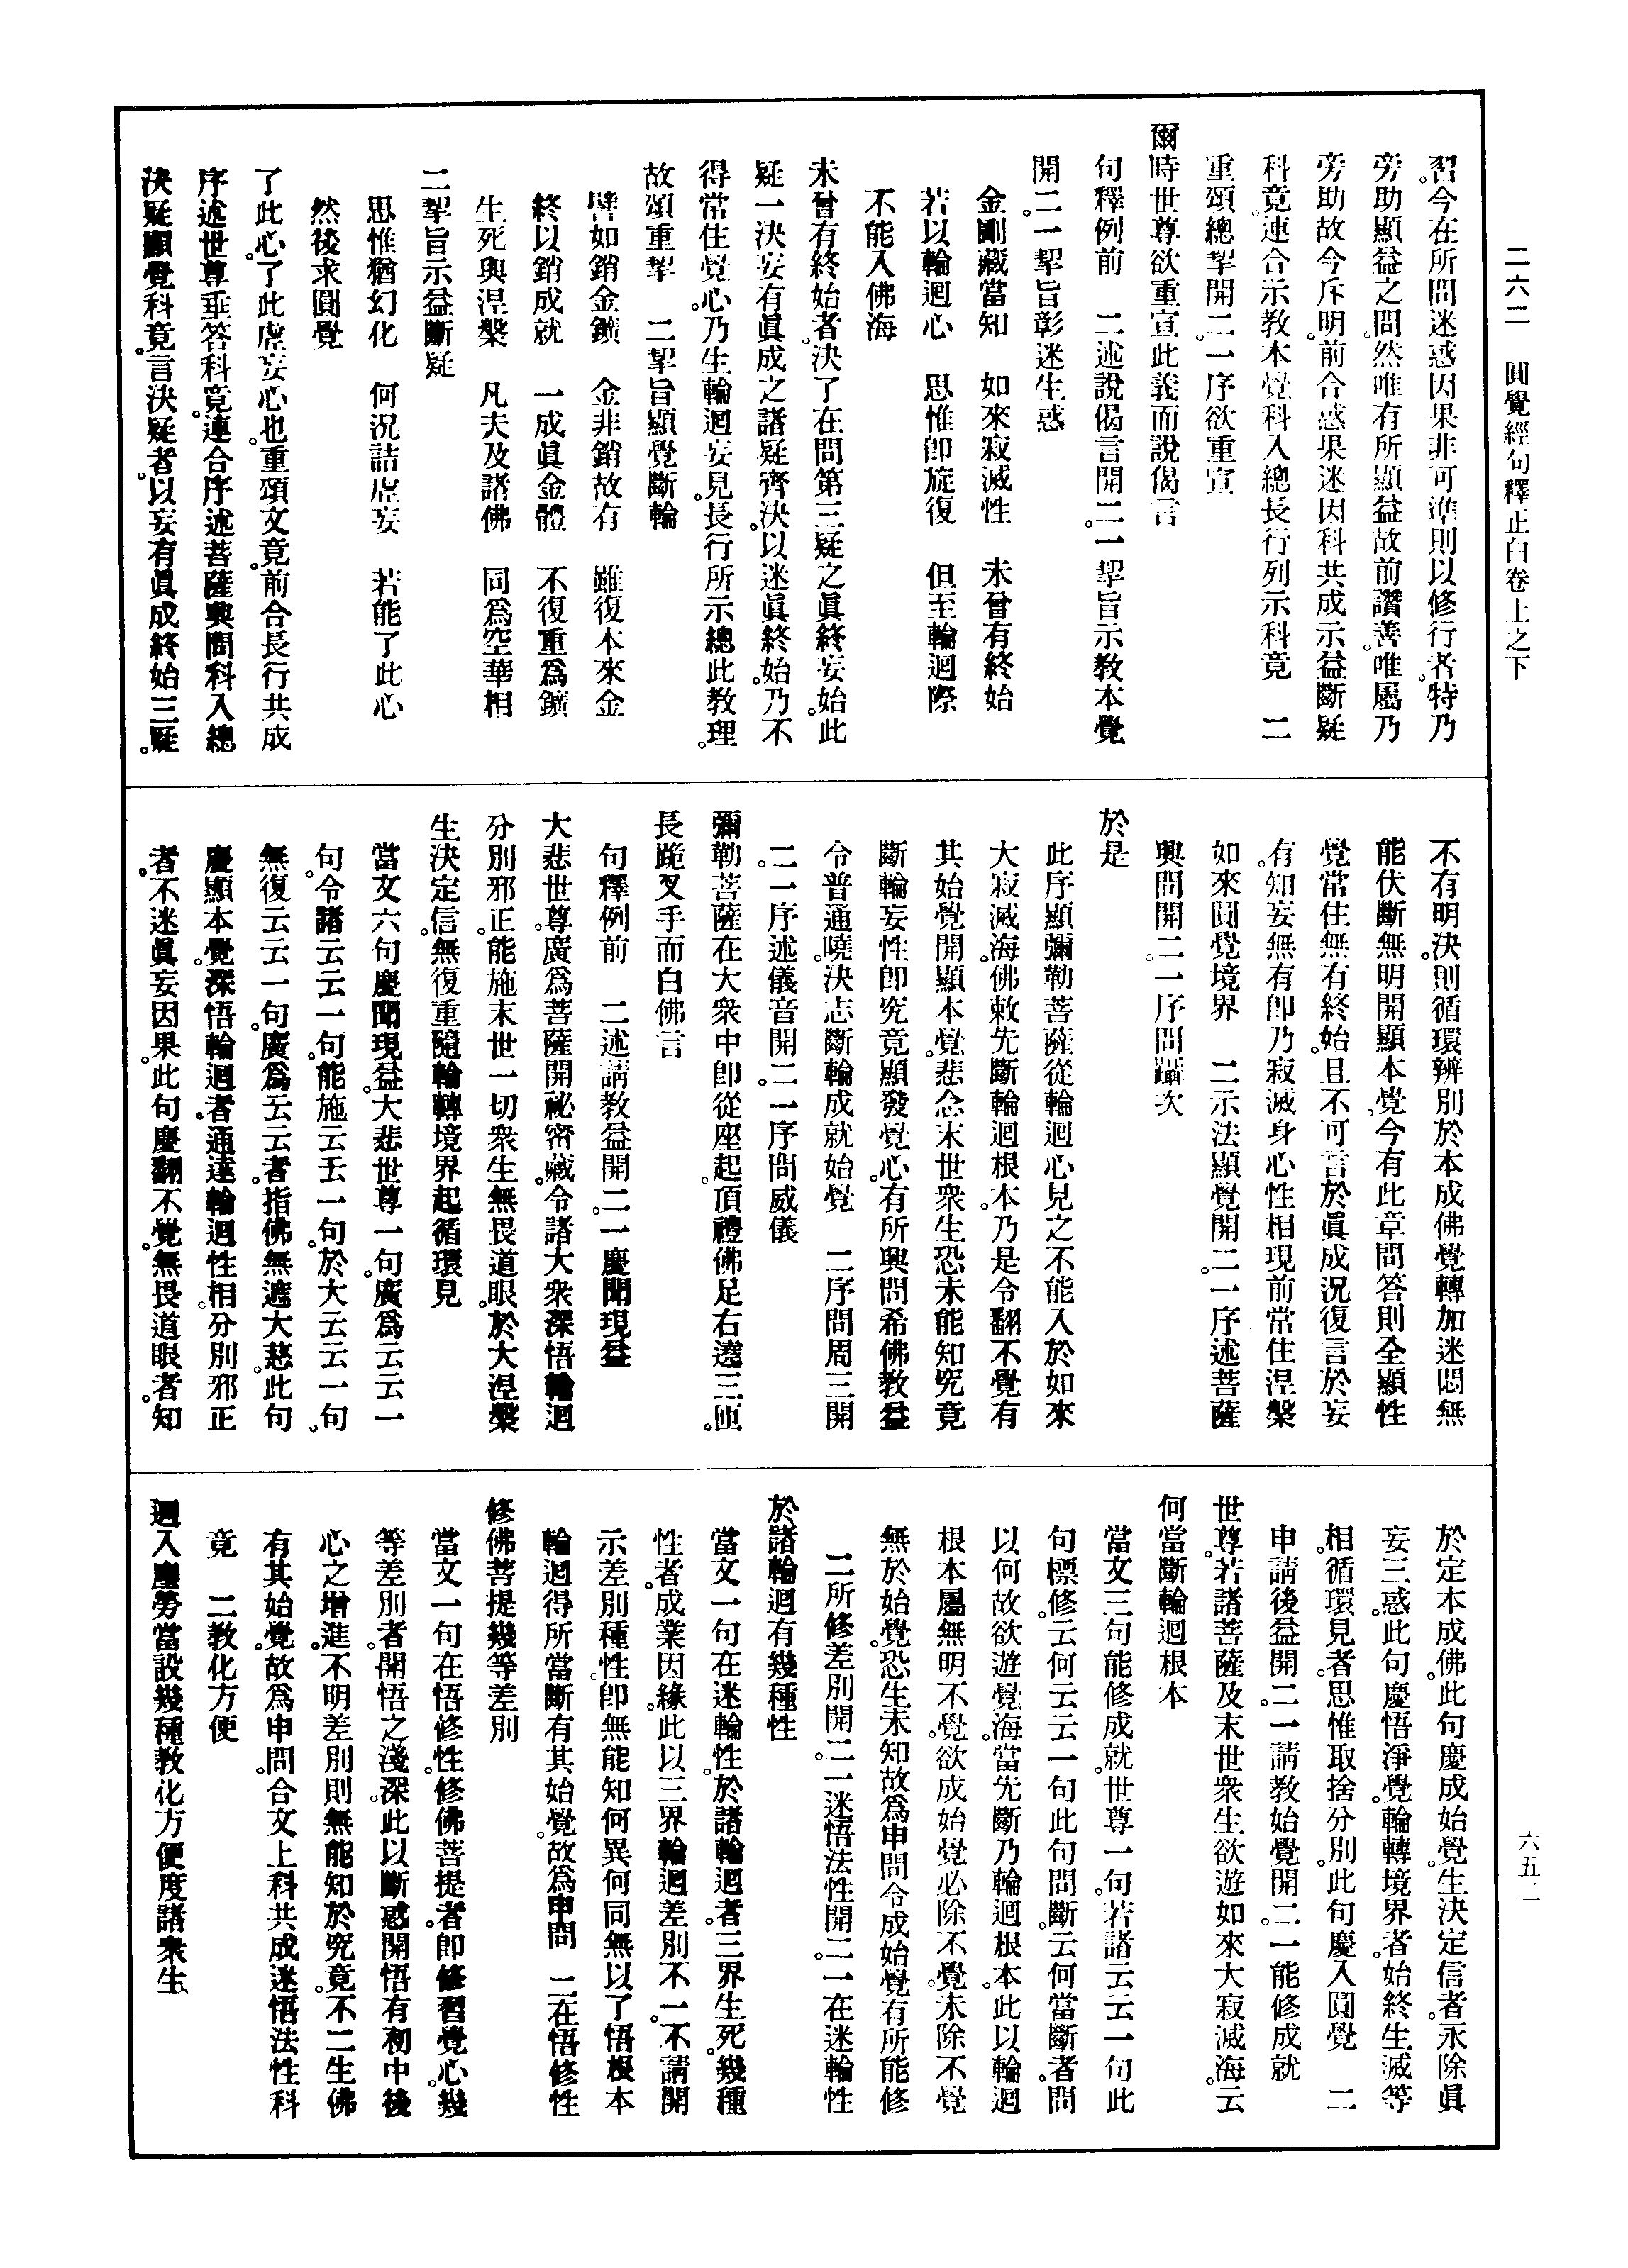 二六二　圓覺經句釋正白卷上之下
六五二
習。今在所問迷惑因果非可準則以修行者。特乃
旁助顯益之問。然唯有所顯益故前讚善。唯屬乃
旁助故今斥明。前合惑果迷因科共成示益斷疑
科竟。連合示教本覺科入總長行列示科竟　二
重頌總挈開二。一序欲重宣
爾時世尊欲重宣此義而說偈言
句釋例前　二述說偈言開二。一挈旨示教本覺
開二。一挈旨彰迷生惑
金剛藏當知　如來寂滅性　未曾有終始
若以輪迴心　思惟即旋復　但至輪迴際
不能入佛海
未曾有終始者。決了在問第三疑之眞終妄始。此
疑一決妄有眞成之諸疑齊決。以迷眞終始。乃不
得常住覺心。乃生輪迴妄見。長行所示總此教理。
故頌重挈　二挈旨顯覺斷輪
譬如銷金鑛　金非銷故有　雖復本來金
終以銷成就　一成眞金體　不復重爲鑛
生死與涅槃　凡夫及諸佛　同爲空華相
二挈旨示益斷疑
思惟猶幻化　何況詰虛妄　若能了此心
然後求圓覺
了此心。了此虛妄心也。重頌文竟。前合長行共成
序述世尊垂答科竟。連合序述菩薩興問科入總
決疑顯覺科竟。言決疑者。以妄有眞成終始三疑。
不有明決。則循環辨別於本成佛覺轉加迷悶無
能伏斷無明開顯本覺。今有此章問答則全顯性
覺常住無有終始。且不可言於眞成況復言於妄
有。知妄無有即乃寂滅身心性相現前常住涅槃
如來圓覺境界　二示法顯覺開二。一序述菩薩
興問開二。一序問躡次
於是
此序顯彌勒菩薩從輪迴心見之不能入於如來
大寂滅海。佛敕先斷輪迴根本。乃是令翻不覺有
其始覺開顯本覺。悲念末世衆生恐未能知究竟
斷輪妄性即究竟顯發覺心。有所興問希佛教益
令普通曉。決志斷輪成就始覺　二序問周三開
二。一序述儀音開二。一序問威儀
彌勒菩薩在大衆中即從座起。頂禮佛足右遶三匝。
長跪叉手而白佛言
句釋例前　二述請教益開二。一慶聞現益
大悲世尊。廣爲菩薩開祕密藏。令諸大衆深悟輪迴
分別邪正。能施末世一切衆生無畏道眼。於大涅槃
生決定信。無復重隨輪轉境界起循環見
當文六句慶聞現益。大悲世尊一句。廣爲云云一
句。令諸云云一句。能施云云一句。於大云云一句。
無復云云一句。廣爲云云者。指佛無遮大慈。此句
慶顯本覺。深悟輪迴者。通達輪迴性相。分別邪正
者。不迷眞妄因果。此句慶翻不覺。無畏道眼者。知
於定本成佛。此句慶成始覺。生決定信者。永除眞
妄三惑。此句慶悟淨覺。輪轉境界者。始終生滅等
相。循環見者。思惟取捨分別。此句慶入圓覺　二
申請後益開二。一請教始覺開二。一能修成就
世尊。若諸菩薩及末世衆生欲遊如來大寂滅海。云
何當斷輪迴根本
當文三句能修成就。世尊一句。若諸云云一句此
句標修。云何云云一句此句問斷。云何當斷者。問
以何故欲遊覺海。當先斷乃輪迴根本。此以輪迴
根本屬無明不覺。欲成始覺必除不覺。未除不覺
無於始覺。恐生未知故爲申問令成始覺有所能修
二所修差別開二。一迷悟法性開二。一在迷輪性
於諸輪迴有幾種性
當文一句在迷輪性。於諸輪迴者。三界生死。幾種
性者。成業因緣。此以三界輪迴差別不一。不請開
示差別種性。即無能知何異何同無以了悟根本
輪迴得所當斷有其始覺。故爲申問　二在悟修性
修佛菩提幾等差別
當文一句在悟修性。修佛菩提者。即修習覺心。幾
等差別者。開悟之淺深。此以斷惑開悟有初中後
心之增進。不明差別則無能知於究竟。不二生佛
有其始覺。故爲申問。合文上科共成迷悟法性科
竟　二教化方便
迴入塵勞當設幾種教化方便度諸衆生